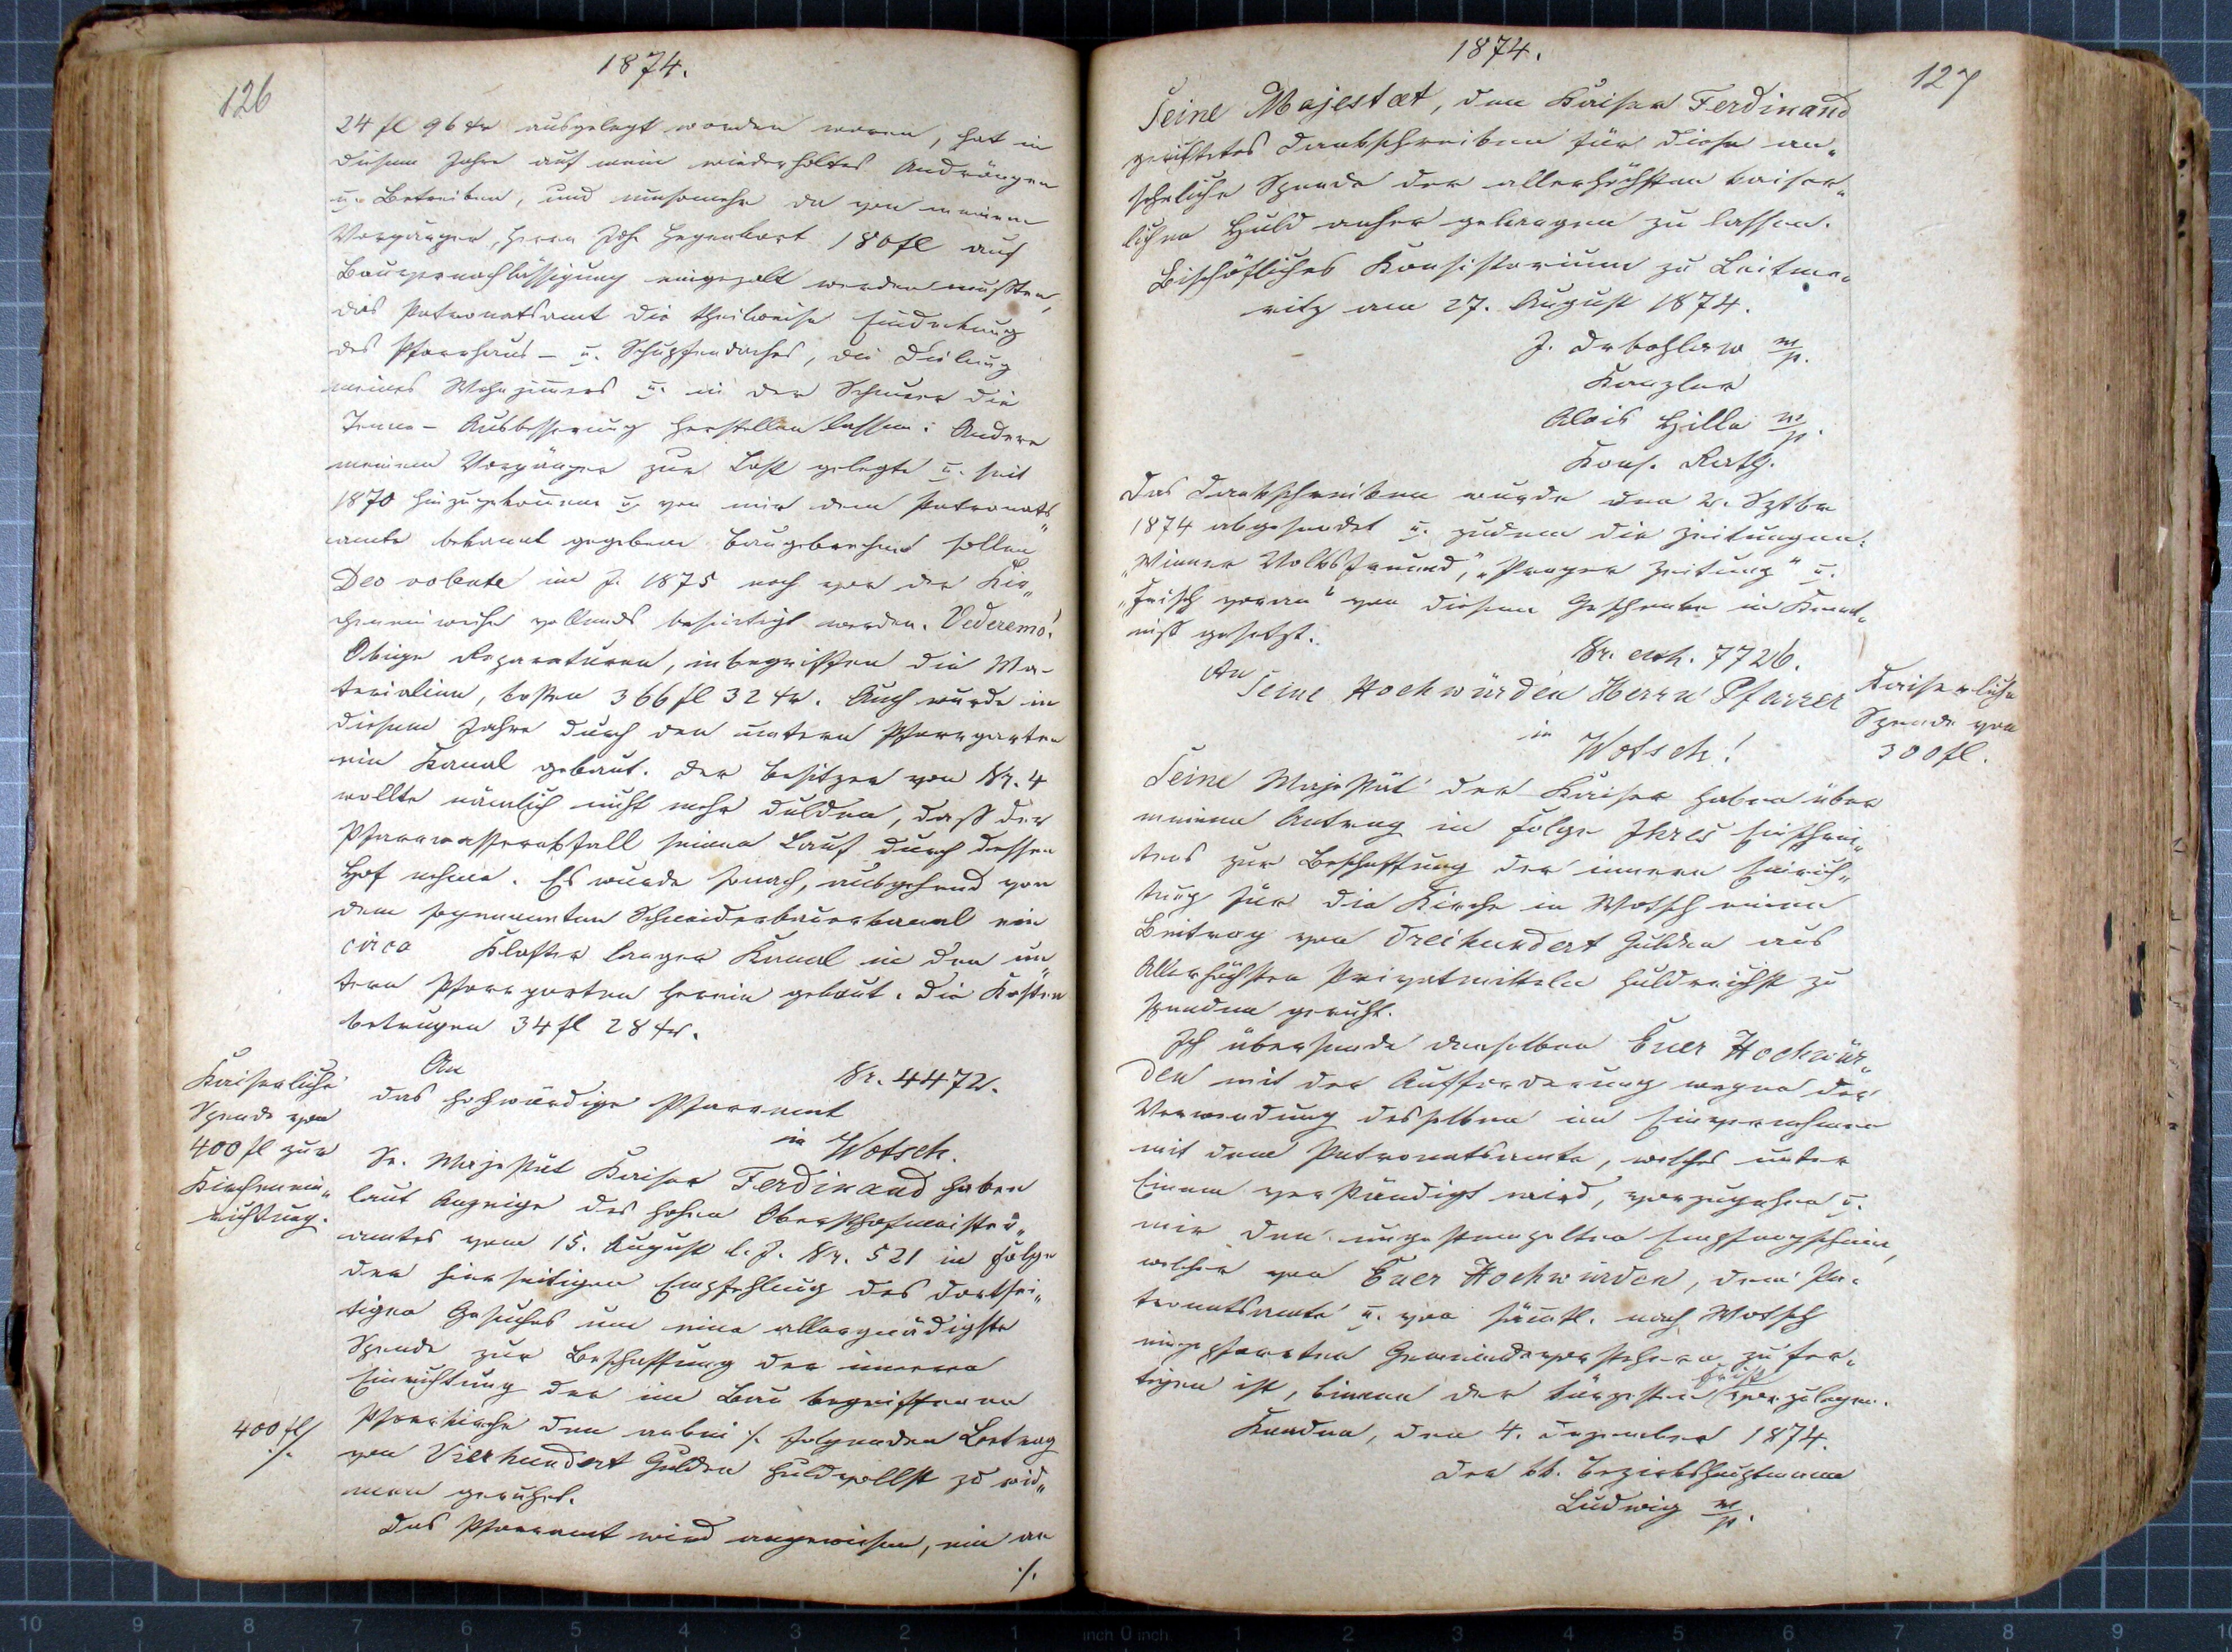 126
1874.
24 fl 96 kr ausgelegt worden waren, hat in
diesem Jahre auf mein wiederholtes Andrängen
u. Betreiben, und umsomehr da von meinem
Vorgänger, Herrn Joh. Hegenbart 180 fl auf
Bauvernachlässigung eingezalt werden mußten,
das Patronatsamt die theilweise Eindeckung
des Pfarrhaus- u. Schupfendaches, die Dielung
meines Wohnzimers u. in der Scheuer die
Tenne-Ausbesserung herstellen lassen. Andere
meinem Vorgänger zur Last gelegte u. seit
1870 hinzugekomene u. von mir dem Patronats„
amte bekannt gegebene Baugebrechen sollen
Deo volente im J. 1875 noch vor der Kir„
cheneinweihe vollends beseitigt werden. Vederemo!
Obige Reparaturen, inbegriffen die Ma-
terialien, kosten 366 fl 32 kr. Auch wurde in
diesem Jahre durch den untern Pfarrgarten
ein Kanal gebaut. Der Besitzer von Nr. 4
wollte nämlich nicht mehr dulden, daß der
Pfarrwasserabfall seinen Lauf durch dessen
Hof nehme. Es wurde sonach, ausgehend von
dem sogenannten Schneiderbauerkanal ein
circa Klafter langer Kanal in den un„
tern Pfarrgarten herein gebaut. Die Kosten
betrugen 34 fl 28 kr.
Kaiserliche
Spende von
400 fl zur
Kirchenein„
richtung.
An
Nr. 4472.
das hochwürdige Pfarramt
in Wotsch.
Se. Majestät Kaiser Ferdinand haben
laut Anzeige des hohen Obersthofmeister„
amtes vom 15. August l. J. Nr. 521 in Folge
der hierseitigen Empfehlung des dortsei„
tigen Gesuches um eine allergnädigste
Spende zur Beschaffung der inneren
Einrichtung der im Bau begriffenen
400 fl
./.
Pfarrkirche den anbei ./. folgenden Betrag
von Vierhundert Gulden huldvollst zu wid„
men geruhet.
Das Pfarramt wird angewiesen, ein an
./.
127
1874.
Seine Majestæt, den Kaiser Ferdinand
gerichtetes Dankschreiben für diese an„
sehnliche Spende der allerhöchsten kaiser„
lichen Huld anher gelangen zu lassen.
Bischöfliches Konsistorium zu Leitme„
ritz am 27. August 1874.
J. Drbohlaw m/p.
Kanzler
Alois Hille m/p.
Kons. Rath.
Das Dankschreiben wurde den 2. Sptbr
1874 abgesendet u. zudem die Zeitungen:
„Wiener Volksfreund", „Prager Zeitung" u.
„Frisch voran" von diesem Geschenke in Kennt„
niß gesetzt.
Nr. exh. 7726.
Kaiserliche
Spende von
300 fl.
An
Seine Hochwürden Herrn Pfarrer
in
Wotsch!
Seine Majestät der Kaiser haben über
meinen Antrag in Folge Ihres Einschrei„
tens zur Beschaffung der innern Einrich„
tung für die Kirche in Wotsch einen
Beitrag von Dreihundert Gulden aus
Allerhöchsten Privatmitteln huldreichst zu
spenden geruht.
Ich übersende denselben Euer Hochwür„
den mit der Aufforderung wegen der
Verwendung desselben im Einvernehmen
mit dem Patronatsamte, welches unter
Einem verständigt wird, vorzugehen u.
mir den ungestempelten Empfangschein,
welcher von Euer Hochwürden, dem Pa„
tronatsamte u. von sämtl. nach Wotsch
eingepfarrten Gemeindevorstehern zu fer„
tigen ist, binnen der kürzesten Frist vorzulegen.
Kaaden, den 4. Dezember 1874.
Der kk. Bezirkshauptmann
Ludwig m/p.